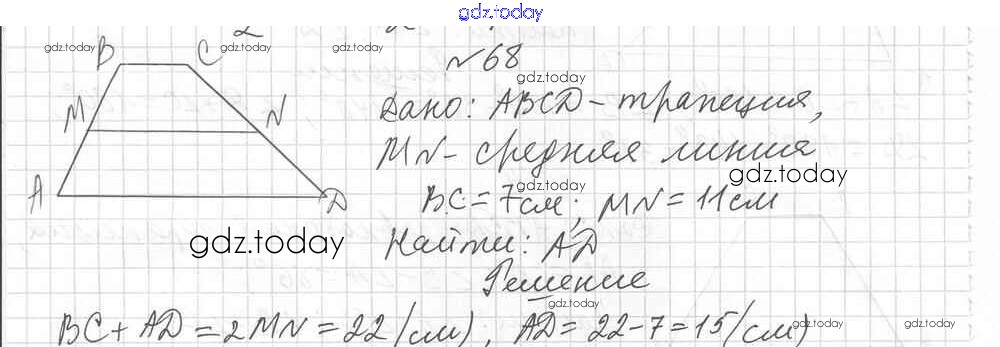 gdz.today
№68
Дано: ABCD - трапеция,
MN - средняя линия
BC = 7см; MN = 11см
Найти: AD
Решение
BC + AD = 2MN = 22 (см); AD = 22-7 = 15 (см)
B C
M N
A D
gdz.today
gdz.today
gdz.today
gdz.today
gdz.today
gdz.today
gdz.today
gdz.today
gdz.today
gdz.today
gdz.today